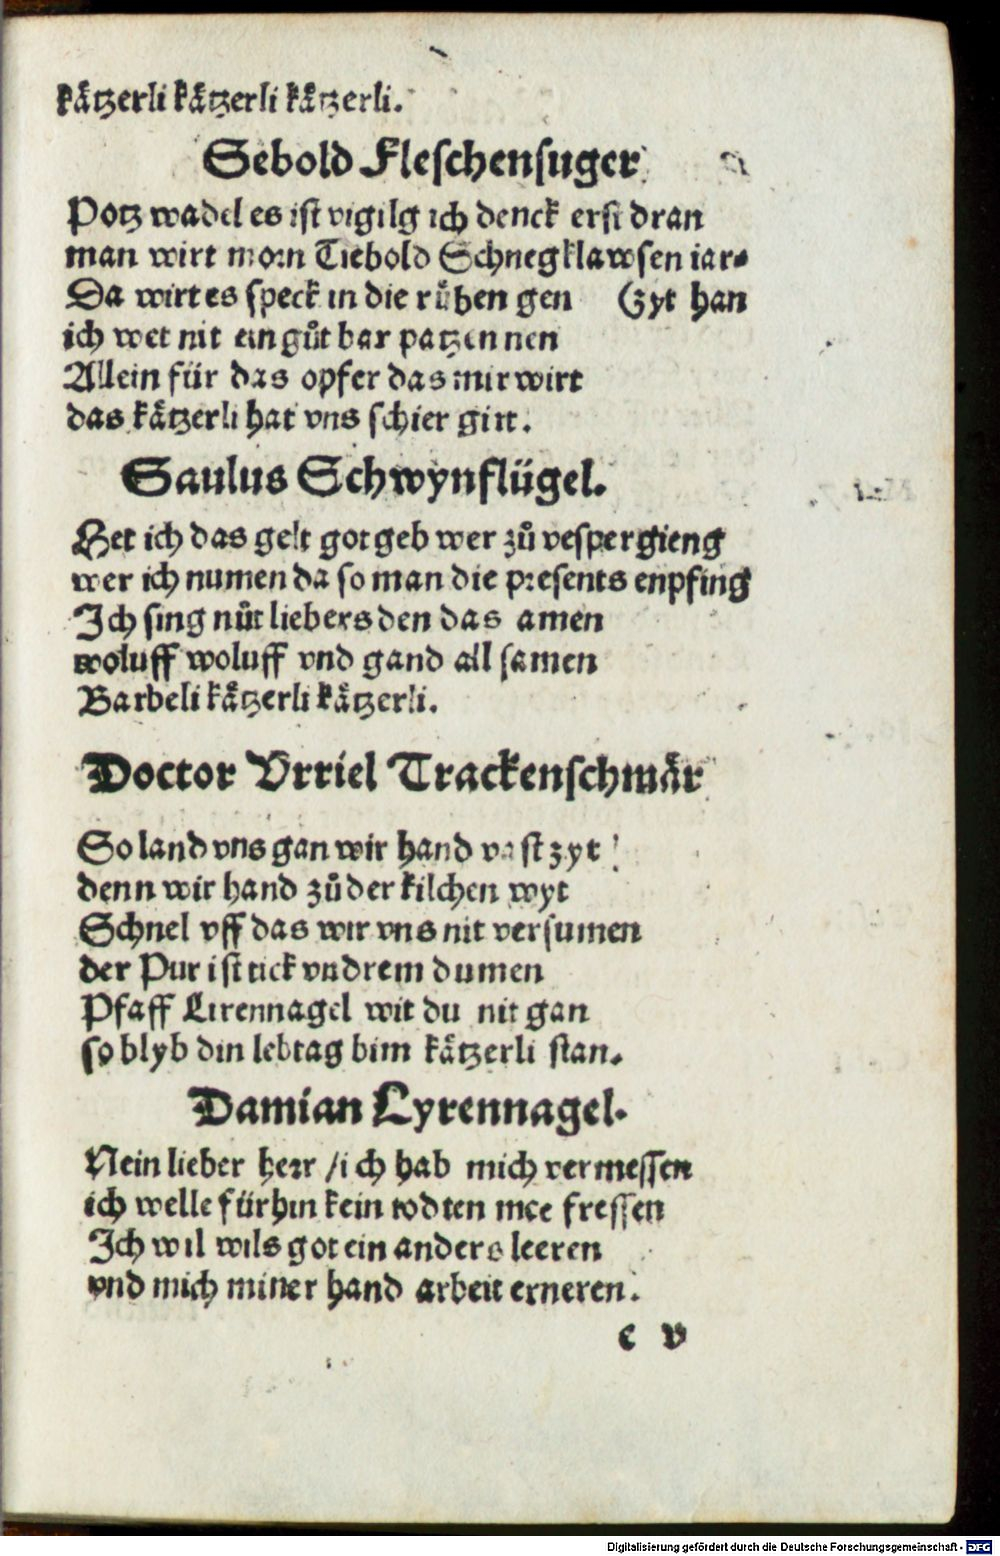 kåtzerli kåtzerli kåtzerli.
Sebold Fleschensuger
Potz wadel es ist vigilg ich denck erst dran
man wirt morn Tiebold Schnegklawsen iar⸗
Da wirt es speck in die růben gen (zyt han
ich wet nit ein gůt bar patzen nen
Allein für das opfer das mir wirt
das kåtzerli hat vns schier girt.
Saulus Schwynflügel.
Het ich das gelt got geb wer zů vesper gieng
wer ich numen da so man die presents enpfing
Ich sing nůt liebers den das amen
woluff woluff vnd gand all samen
Barbeli kåtzerli kåtzerli.
Doctor Vrriel Trackenschmår
So land vns gan wir hand vast zyt
denn wir hand zů der kilchen wyt
Schnel vff das wir vns nit versumen
der Pur ist tick vndrem dumen
Pfaff Lirennagel wit du nit gan
so blyb din lebtag bim kåtzerli stan.
Damian Lyrennagel.
Nein lieber herr /ich hab mich vermessen
ich welle fürhin kein todten mee fressen
Ich wil wils got ein anders leeren
vnd mich miner hand arbeit erneren.
c v
Digitalisierung gefördert durch die Deutsche Forschungsgemeinschaft - DFG